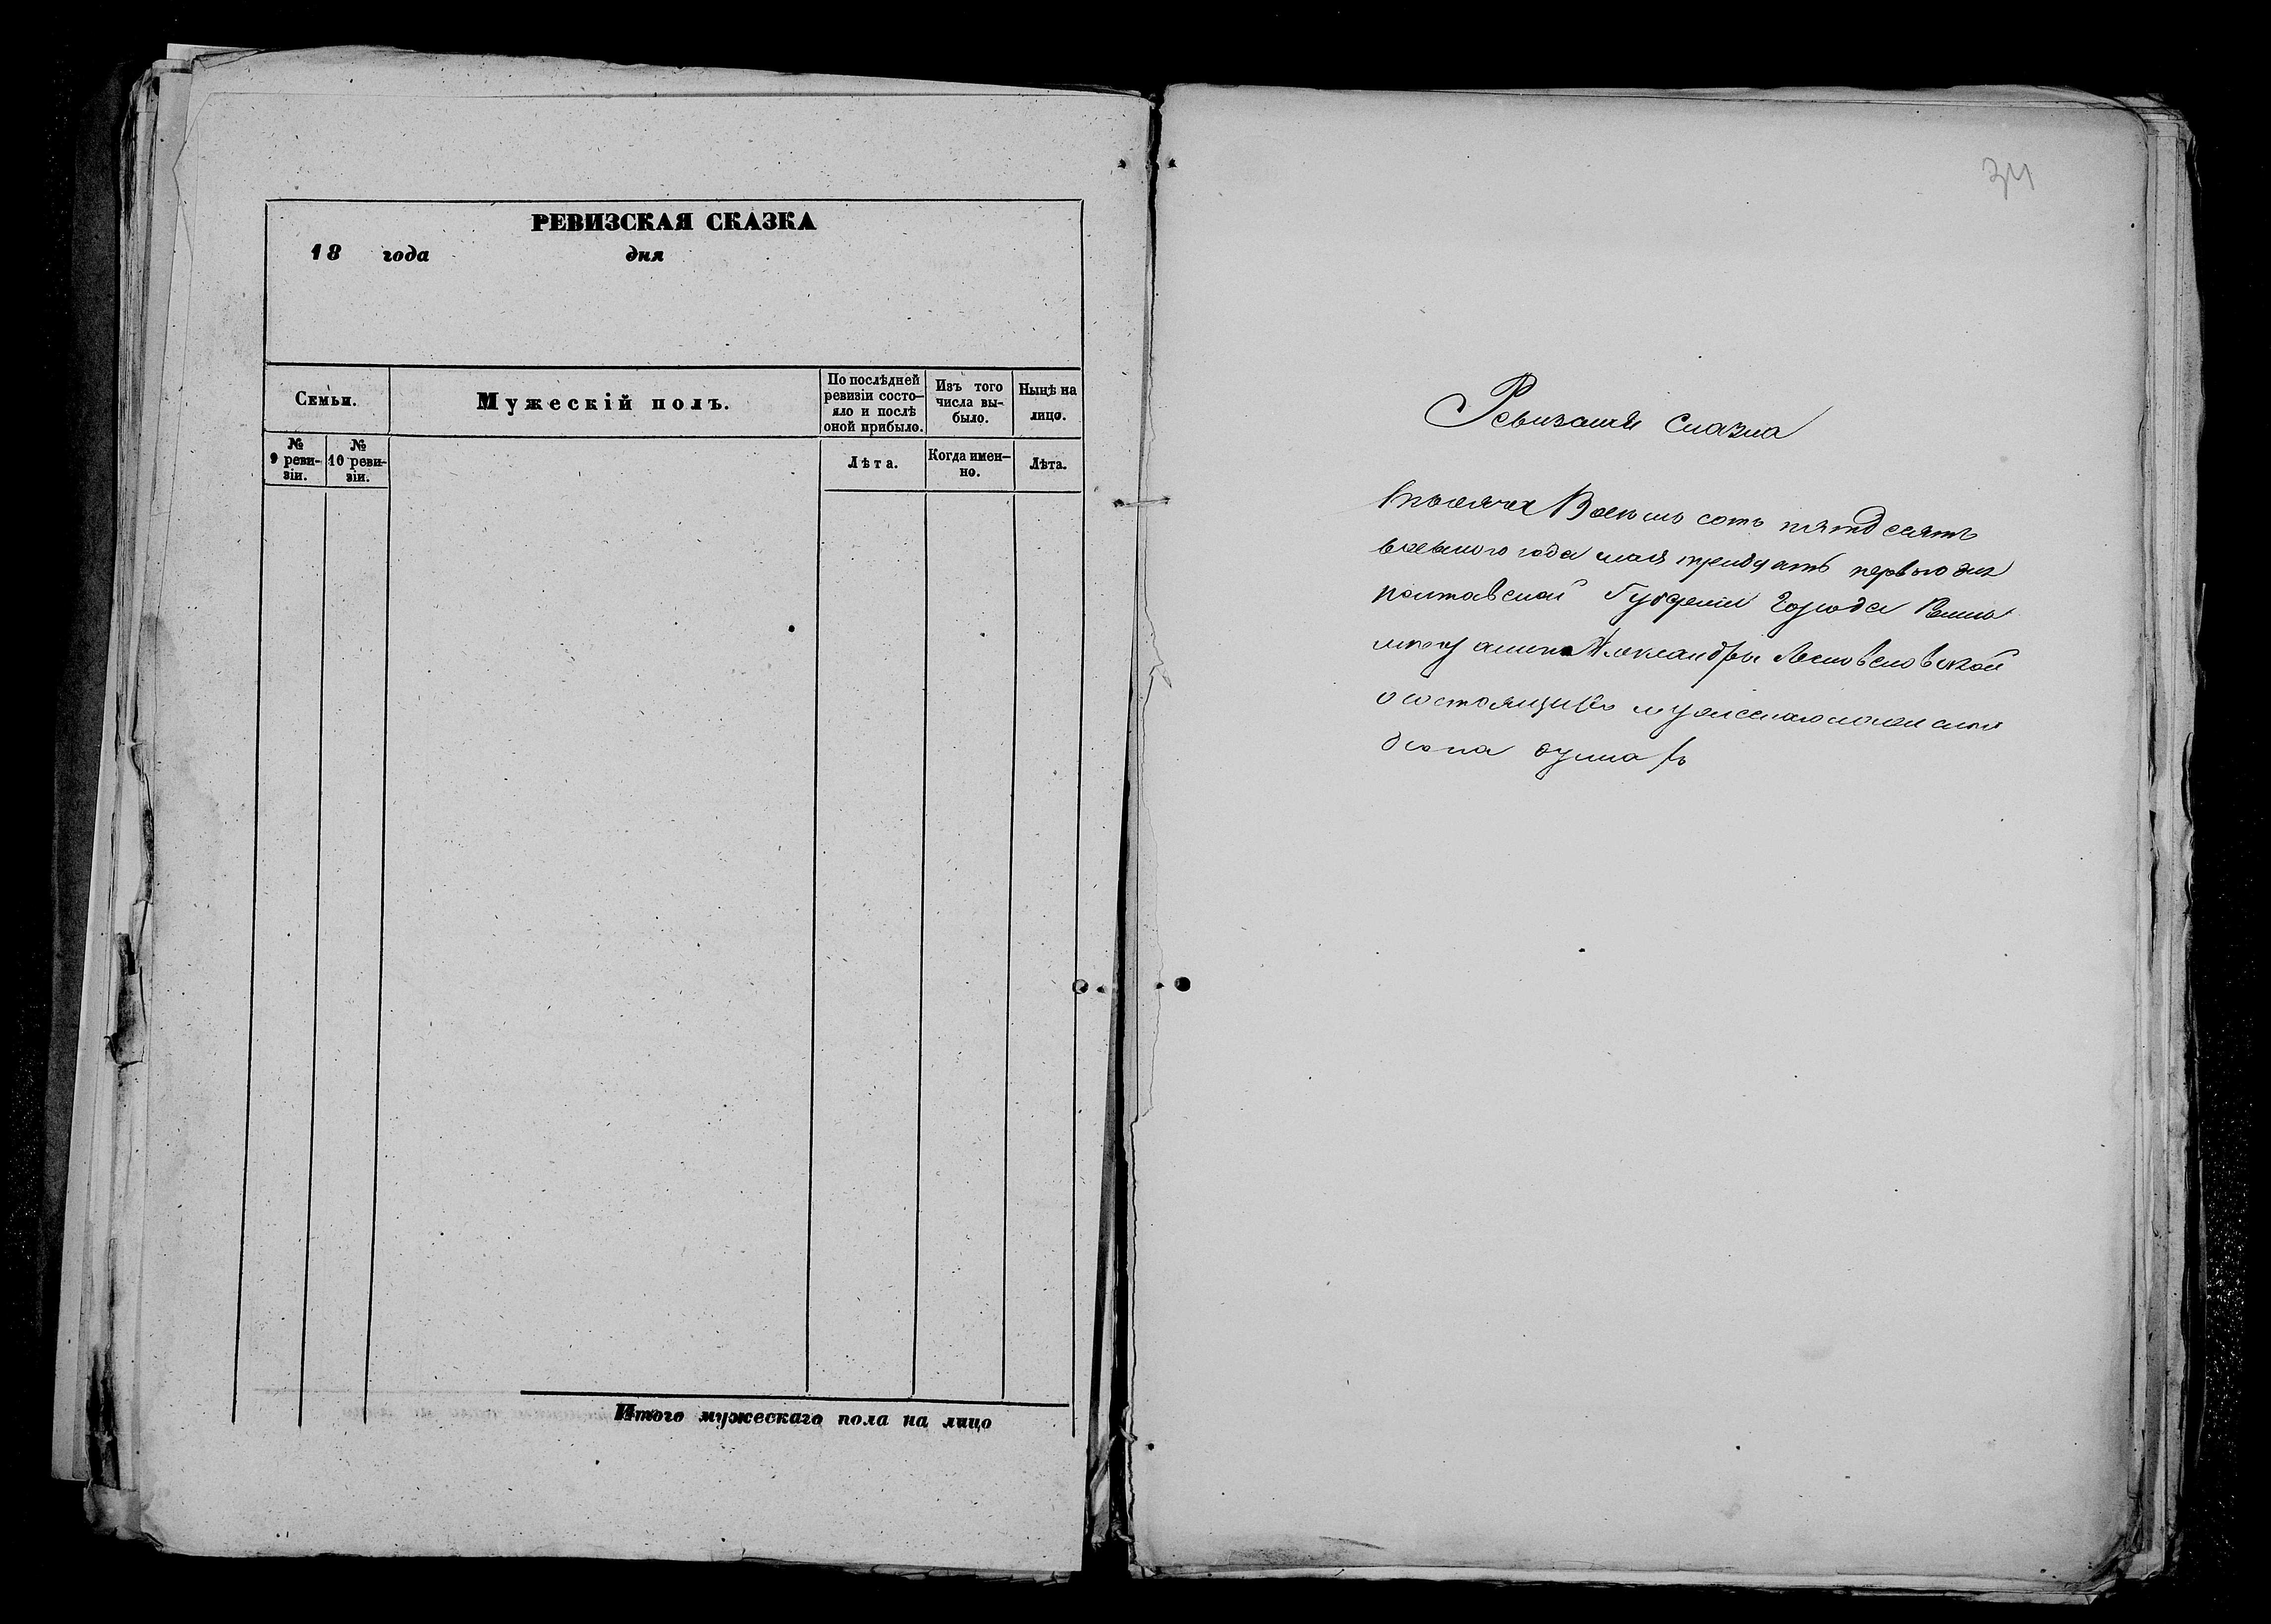 РЕВИЗСКАЯ СКАЗКА
18 года дня
Семьи.
Мужескій полъ.
По послѣдней
ревизіи состо-
яло и послѣ
оной прибыло.
Изъ того
числа вы-
было.
Нынѣ на
лицо.
№
9 реви-
зіи.
№
10 реви-
зіи.
Лѣта.
Когда имен-
но.
Лѣта.
Итого мужескаго пола на лицо
34
Ревизская Сказка
тысяча Восемь сотъ пятдесятъ
года мая тридцать первого дня
полтавской Губерніи Города
Александры
о состоящихъ мужескаго
душахъ